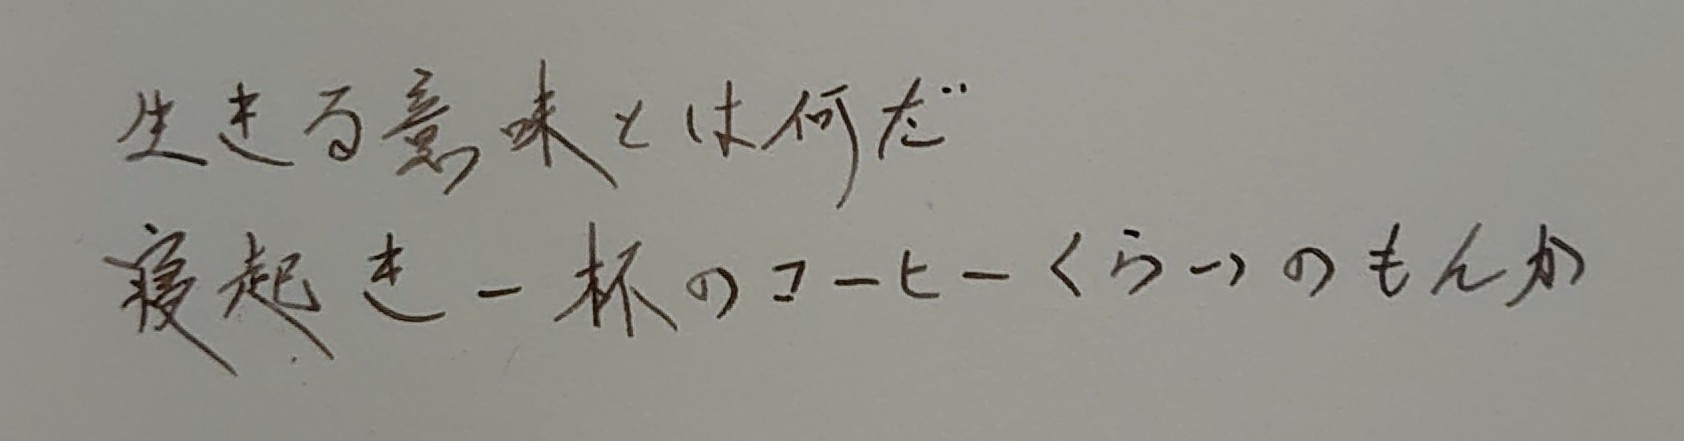 生きる意味とは何だ
寝起き一杯のコーヒーくらいのもんか